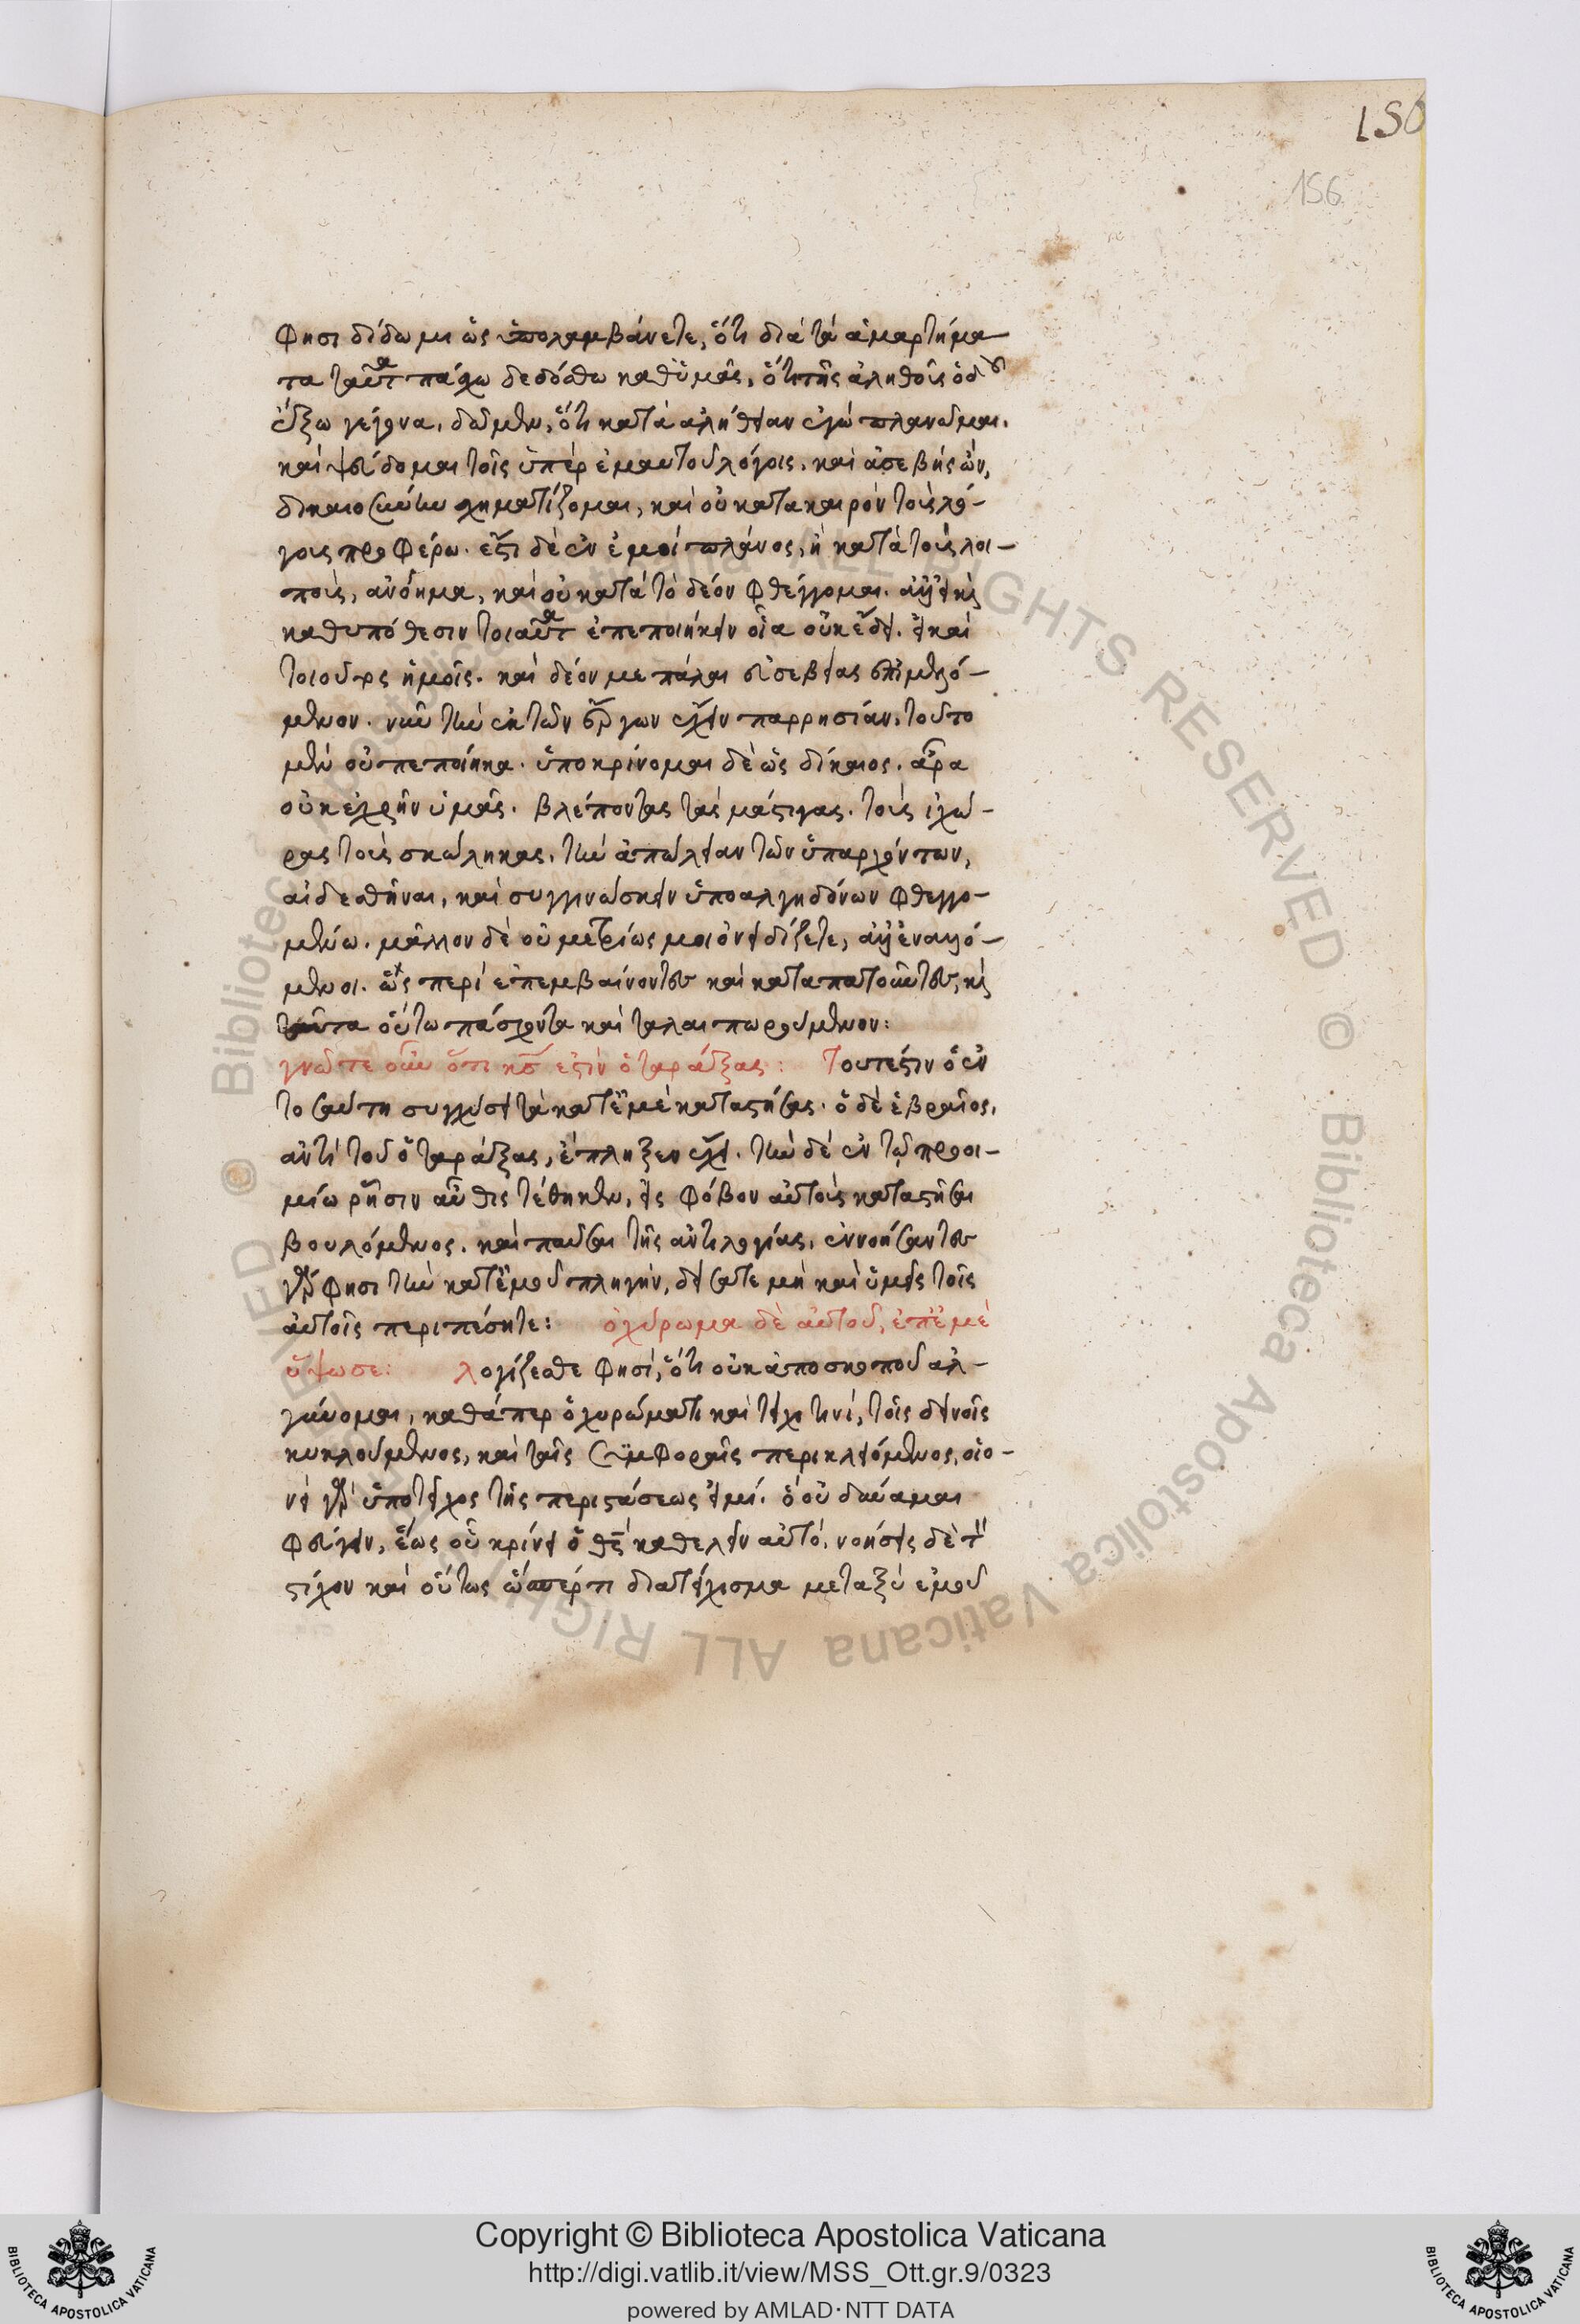 150
156
φησι δίδωμι ὡς ὑπολαμβάνετε, ὅτι διὰ τὰ ἁμαρτήμα-
τα ταῦτα πάσχω δεδόσθω καθ' ὑμᾶς, ὅτι τῆς ἀληθοῦς ὁδοῦ
ἔξω γέγονα, δῶμεν, ὅτι κατὰ ἀλήθειαν ἐγὼ πλανῶμαι.
καὶ ψεύδομαι τοῖς ὑπὲρ ἐμαυτοῦ λόγοις. καὶ ἀσεβὴς ὢν,
δικαιοσύνην σχηματίζομαι, καὶ οὐ κατα καιρὸν τοὺς λό-
γους προφέρω. ἔστι δὲ ἐν ἐμοὶ πλάνος, ἢ κατὰ τοὺς λοι-
ποὺς, ἀνόημα, καὶ οὐ κατὰ τὸ δέον φθέγγομαι. ἀλλ' εἰ καὶ
καθυπόθεσιν τοιαῦτα ἐπεποιήκειν οἷα οὐκ ἔδει. εἰ καὶ
τοιοῦτος ἤμοις. καὶ δέον με πάλαι εὐσεβείας ἐπιμελό-
μενον. νῦν τὴν ἐκ τῶν ἔργων ἔχειν παρρησίαν, τοῦτο
μὲν οὐ πεποίηκα. ὑποκρίνομαι δὲ ὡς δίκαιος. ἆρα
οὐκ ἐχρῆν ὑμᾶς. βλέποντας τὰς μάστιγας. τοὺς ἰχώ-
ρας τοὺς σκώληκας, τὴν ἀπώλειαν τῶν ὑπαρχόντων,
αἰδεσθῆναι, καὶ συγγινώσκειν ὑπο ἀλγηδόνων φθεγγο-
μένω. μᾶλλον δὲ οὐ μετρίως μοι ὀνειδίζετε, ἀλλ' ἐναλλό-
μενοι. ὥσπερεὶ ἐπεμβαίνοντες καὶ καταπατοῦντες, καὶ
ταῦτα οὕτω πάσχοντα καὶ ταλαιπωρούμενον:
γνῶτε οὖν ὅτι κς ἐστὶν ὁ ταράξας: Τουτέστιν ὁ ἐν
τοσαύτη συγχύσει τὰ κατ' ἐμὲ καταστήσας. ὁ δὲ ἑβραῖος,
ἀντὶ τοῦ ὁ ταράξας, ἔπληξεν ἔχει. τὴν δὲ ἐν τῷ προοι-
μίω ῥῆσιν αὖθις τέθηκεν, εἰς φόβον αὐτοὺς καταστῆσαι
βουλόμενος. καὶ παῦσαι τῆς ἀντιλογίας, ἐννοήσαντες
γάρ φησι τὴν κατ' ἐμοῦ πληγὴν, δείσατε μὴ καὶ ὑμεῖς τοῖς
αὐτοῖς περιπέσητε: ὀχύρωμα δὲ αὐτοῦ, ἐπ' ἐμὲ
ὕψωσε: λογίζεσθε φησὶ, ὅτι οὐκ ἀπο σκοποῦ ἀλ-
γύνομαι, καθάπερ ὀχυρώματι καὶ τείχει τινί, τοῖς δεινοῖς
κυκλούμενος, καὶ ταῖς συμφοραῖς περικλειόμενος, οἱο-
νεὶ γὰρ ὑπο τεῖχος τῆς περιστάσεως εἰμί. ὃ οὐ δύναμαι
φεύγειν, ἕως οὗ κρίνει ὁ θς καθελεῖν αὐτό. νοήσεις δὲ τὸν
στίχον καὶ οὕτως ὥσπέρ τι διατείχισμα μεταξὺ ἐμοῦ
Copyright © Biblioteca Apostolica Vaticana
http://digi.vatlib.it/view/MSS_Ott.gr.9/0323
powered by AMLAD·NTT DATA